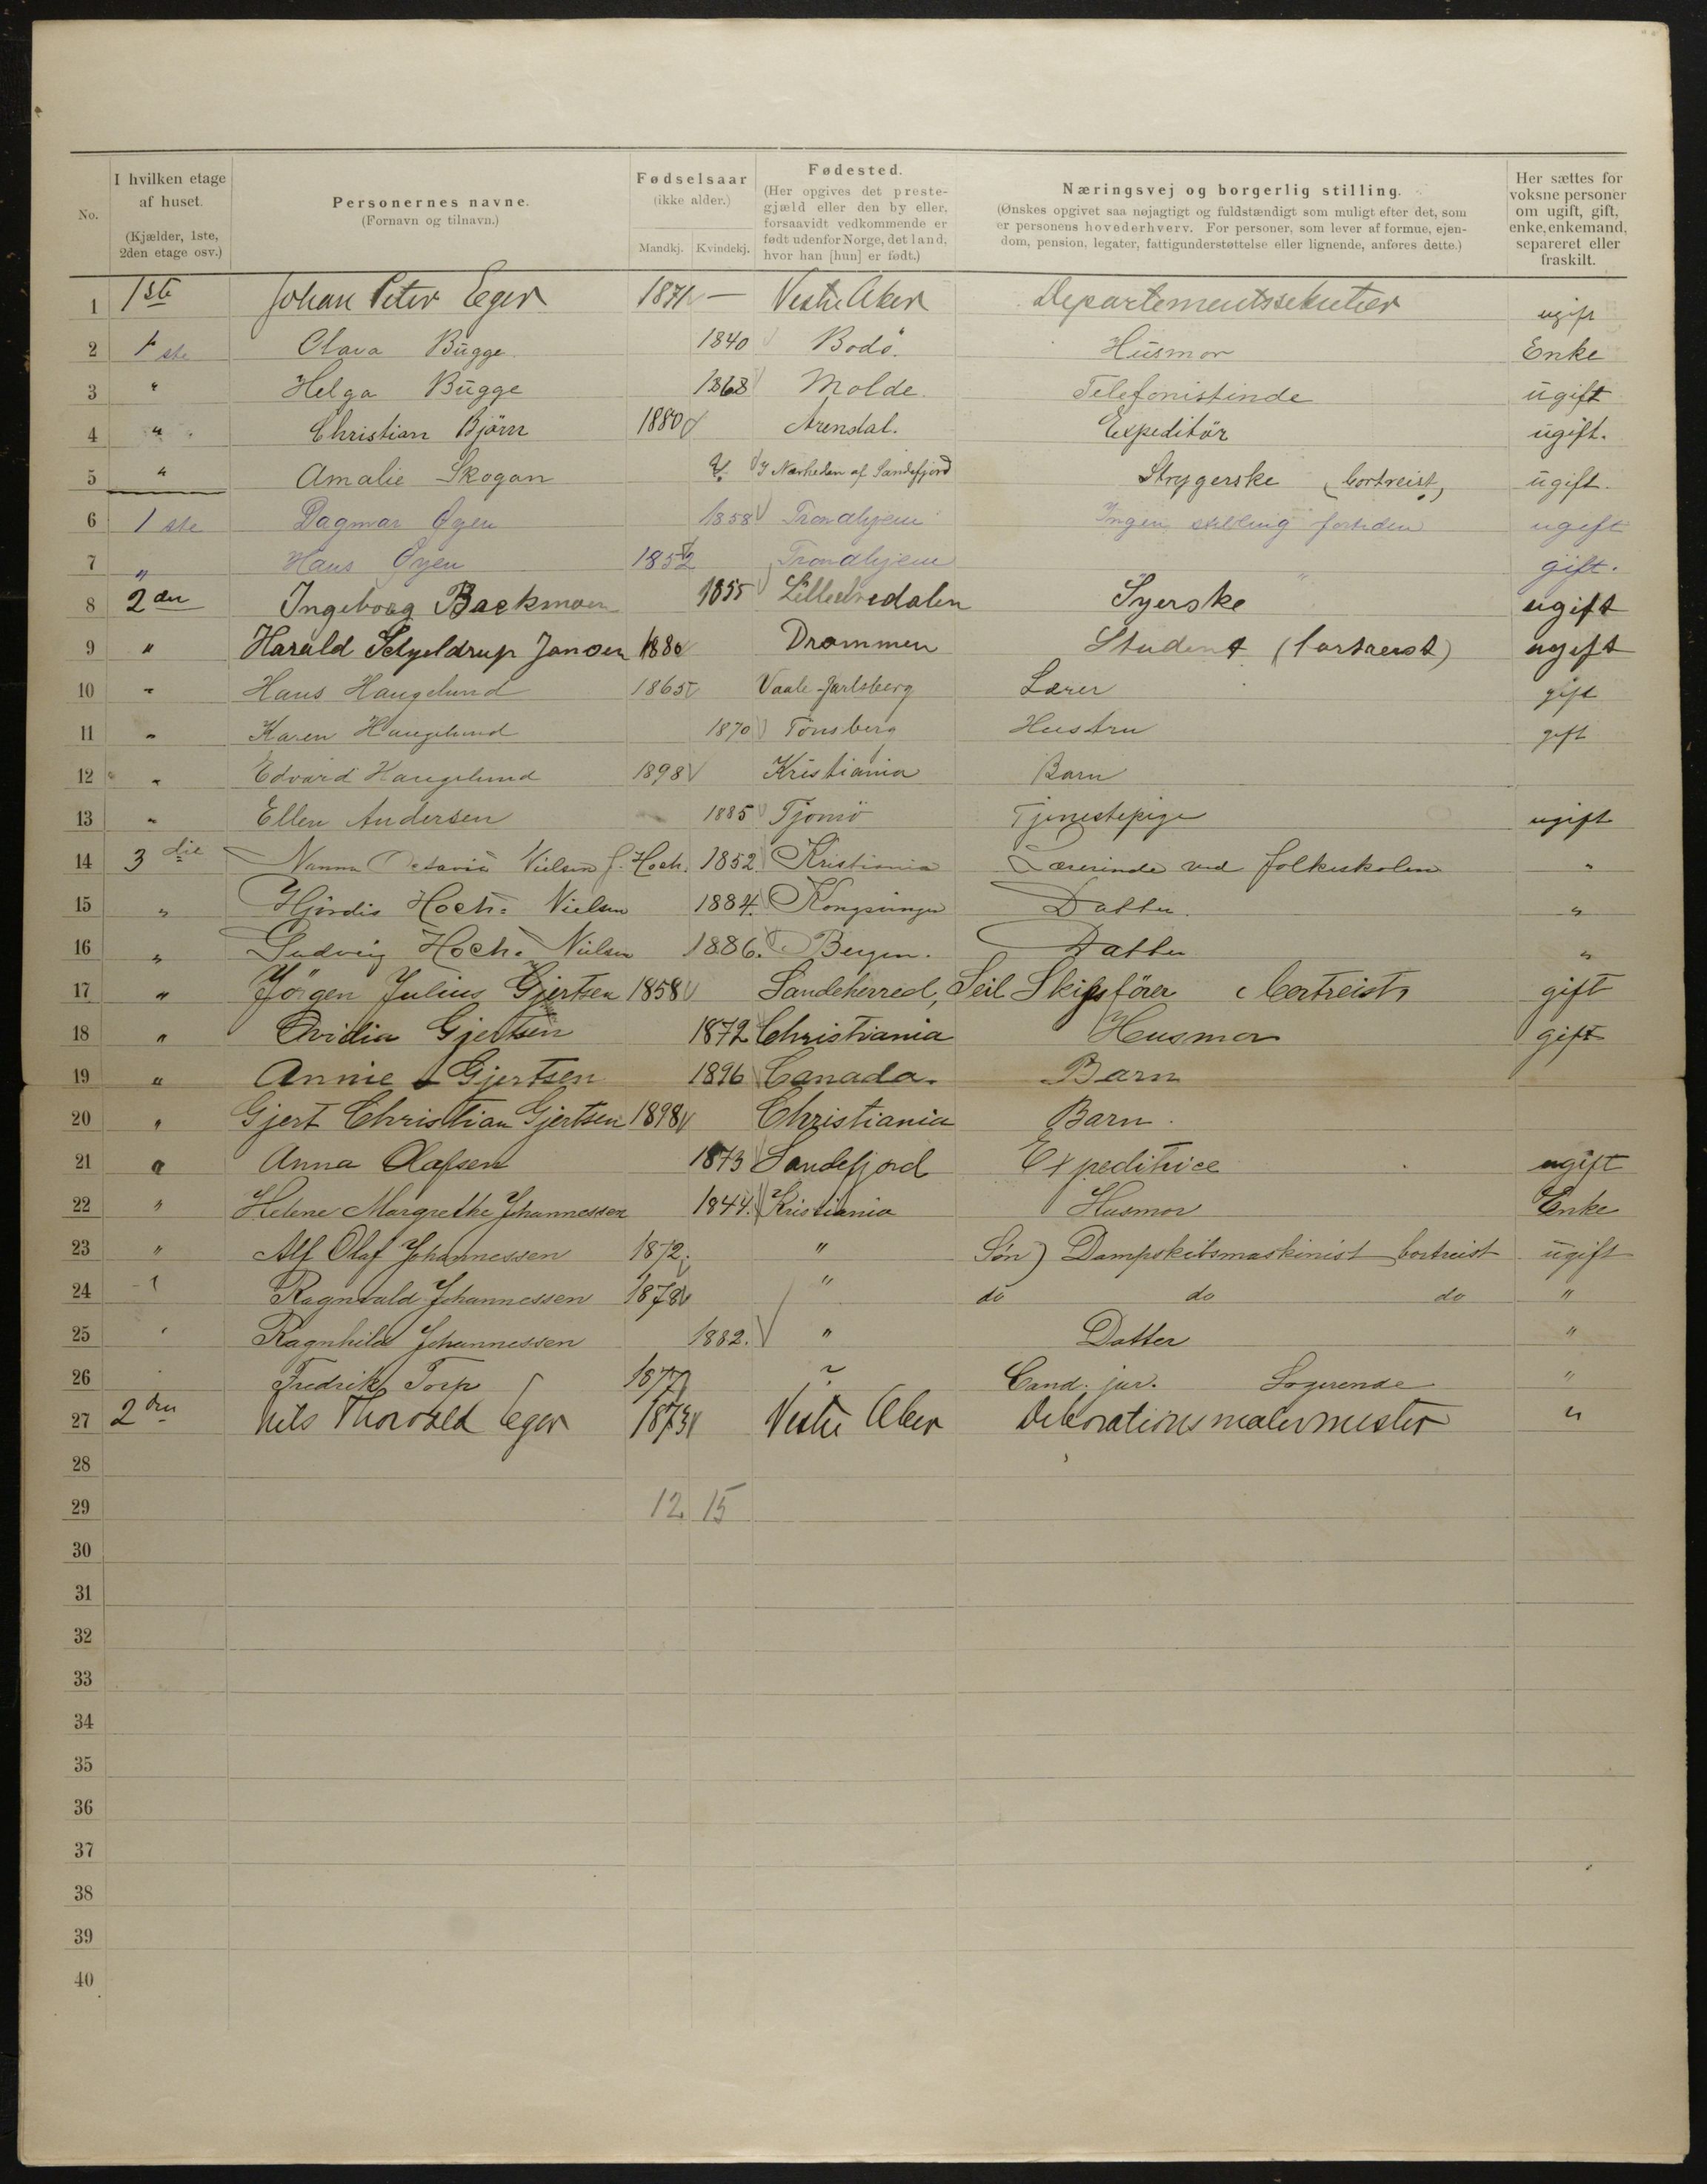 No.
I hvilken etage af huset. (Kjælder, 1ste, 2den etage osv.)
Personernes navne. (Fornavn og tilnavn.)
Fødselsaar (ikke alder.) Mandkj. Kvindekj.
Fødested. (Her opgives det prestegjæld eller den by eller, forsaavidt vedkommende er født udenfor Norge, det land, hvor han [hun] er født.)
Næringsvej og borgerlig stilling. (Ønskes opgivet saa nøjagtigt og fuldstændigt som muligt efter det, som er personens hovederhverv. For personer, som lever af formue, ejendom, pension, legater, fattigunderstøttelse eller lignende, anføres dette.)
Her sættes for voksne personer om ugift, gift, enke, enkemand, separeret eller fraskilt.
1 1ste Johan Peter Eger 1871 — Vestre Aker Departementssekretær ugift
2 1 ste Olava Bugge 1840 Bodö. Husmor Enke
3 " Helga Bugge 1868 Molde. Telefonistinde ugift
4 " Christian Björn 1880 Arendal. Expeditör ugift.
5 " Amalie Skogan ?. I Nærheden af Sandefjord Strygerske (bortreist) ugift.
6 1 ste Dagmar Øyen 1858 Trondhjem Ingen stilling fortiden ugift
7 " Hans Øyen 1852 Trondhjem " gift.
8 2den Ingeborg Backmoen 1855 Syerske ugift
9 " Harald Schjeldrup Jansen 1880 Drammen Student (bortreist) ugift
10 " Hans Haugelund 1865 Vaale Jarlsberg Lærer gift
11 " Karen Haugelund 1870 Tönsberg Hustru gift
12 " Edvard Haugelund 1898 Kristiania Barn
13 " Ellen Andersen 1885 Tjömö Tjenestepige ugift
14 3 die Nanna Octavia Nielsen f. Hoch. 1852. Kristiania Lærerinde ved folkeskolen "
15 " Hjördis Hoch-Nielsen 1884. Kongsvinger Datter. "
16 " Ludvig Hoch-Nielsen 1886. Bergen. Datter "
17 " Jörgen Julius Gjertsen 1858 Sandeherred, Seil Skipsförer (bortreist) gift
18 " Ovidia Gjertsen 1872 Christiania Husmor gift
19 " Annie Gjertsen 1896 Canada. Barn
20 " Gjert Christian Gjertsen 1898 Christiania Barn.
21 " Anna Olafsen 1873 Sandefjord Expeditrice ugift
22 " Helene Margrethe Johannessen 1844. Kristiania Husmor Enke
23 " Alf Olaf Johannessen 1872. " Sön) Dampskibsmaskinist bortreist ugift
24 " Ragnvald Johannessen 1878 " do do do "
25 " Ragnhild Johannessen 1882. " Datter "
26 Fredrik Torp ? Cand. jur. Logerende "
27 2den Nils Thorvald Eger 1873 Vestre Aker Dekorationsmalermester "
28
29 12 15
30
31
32
33
34
35
36
37
38
39
40